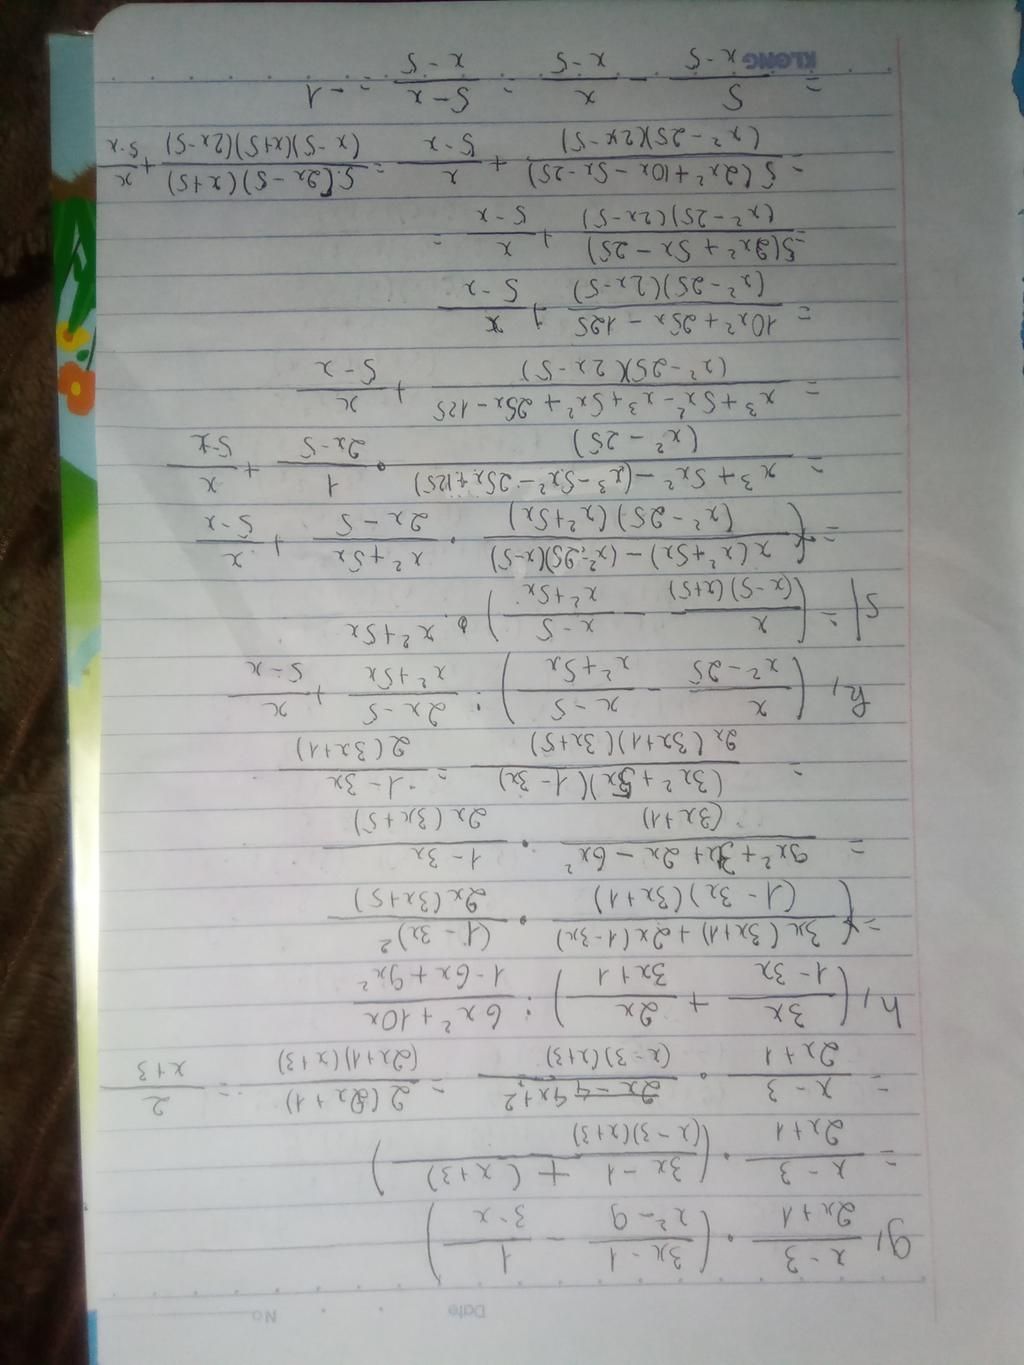 Date No
g, (x - 3)/(2x + 1) · ((3x - 1)/(x² - 9) - 1/(3 - x))
= (x - 3)/(2x + 1) · (3x - 1 + (x + 3))/((x - 3)(x + 3))
= (x - 3)/(2x + 1) · (4x + 2)/((x - 3)(x + 3)) = 2(2x + 1)/((2x + 1)(x + 3)) = 2/(x + 3)
h, (3x/(1 - 3x) + 2x/(3x + 1)) : (6x² + 10x)/(1 - 6x + 9x²)
= (3x(3x + 1) + 2x(1 - 3x))/((1 - 3x)(3x + 1)) · (1 - 3x)²/(2x(3x + 5))
= (9x² + 3x + 2x - 6x²)/(3x + 1) · (1 - 3x)/(2x(3x + 5))
= (3x² + 5x)(1 - 3x)/(2x(3x + 1)(3x + 5)) = (1 - 3x)/(2(3x + 1))
k, (x/(x² - 25) - (x - 5)/(x² + 5x)) : (2x - 5)/(x² + 5x) + x/(5 - x)
= (x/((x - 5)(x + 5)) - (x - 5)/(x² + 5x)) · x² + 5x
= (x(x² + 5x) - (x² - 25)(x - 5))/((x² - 25)(x² + 5x)) · (x² + 5x)/(2x - 5) + x/(5 - x)
= (x³ + 5x² - (x³ - 5x² - 25x + 125))/(x² - 25) · 1/(2x - 5) + x/(5 - x)
= (x³ + 5x² - x³ + 5x² + 25x - 125)/((x² - 25)(2x - 5)) + x/(5 - x)
= (10x² + 25x - 125)/((x² - 25)(2x - 5)) + x/(5 - x)
= 5(2x² + 5x - 25)/((x² - 25)(2x - 5)) + x/(5 - x) =
= 5(2x² + 10x - 5x - 25)/((x² - 25)(2x - 5)) + x/(5 - x) = 5(2x - 5)(x + 5)/((x - 5)(x + 5)(2x - 5)) + x/(5 - x)
= 5/(x - 5) - x/(x - 5) = (5 - x)/(x - 5) = -1
KLONG